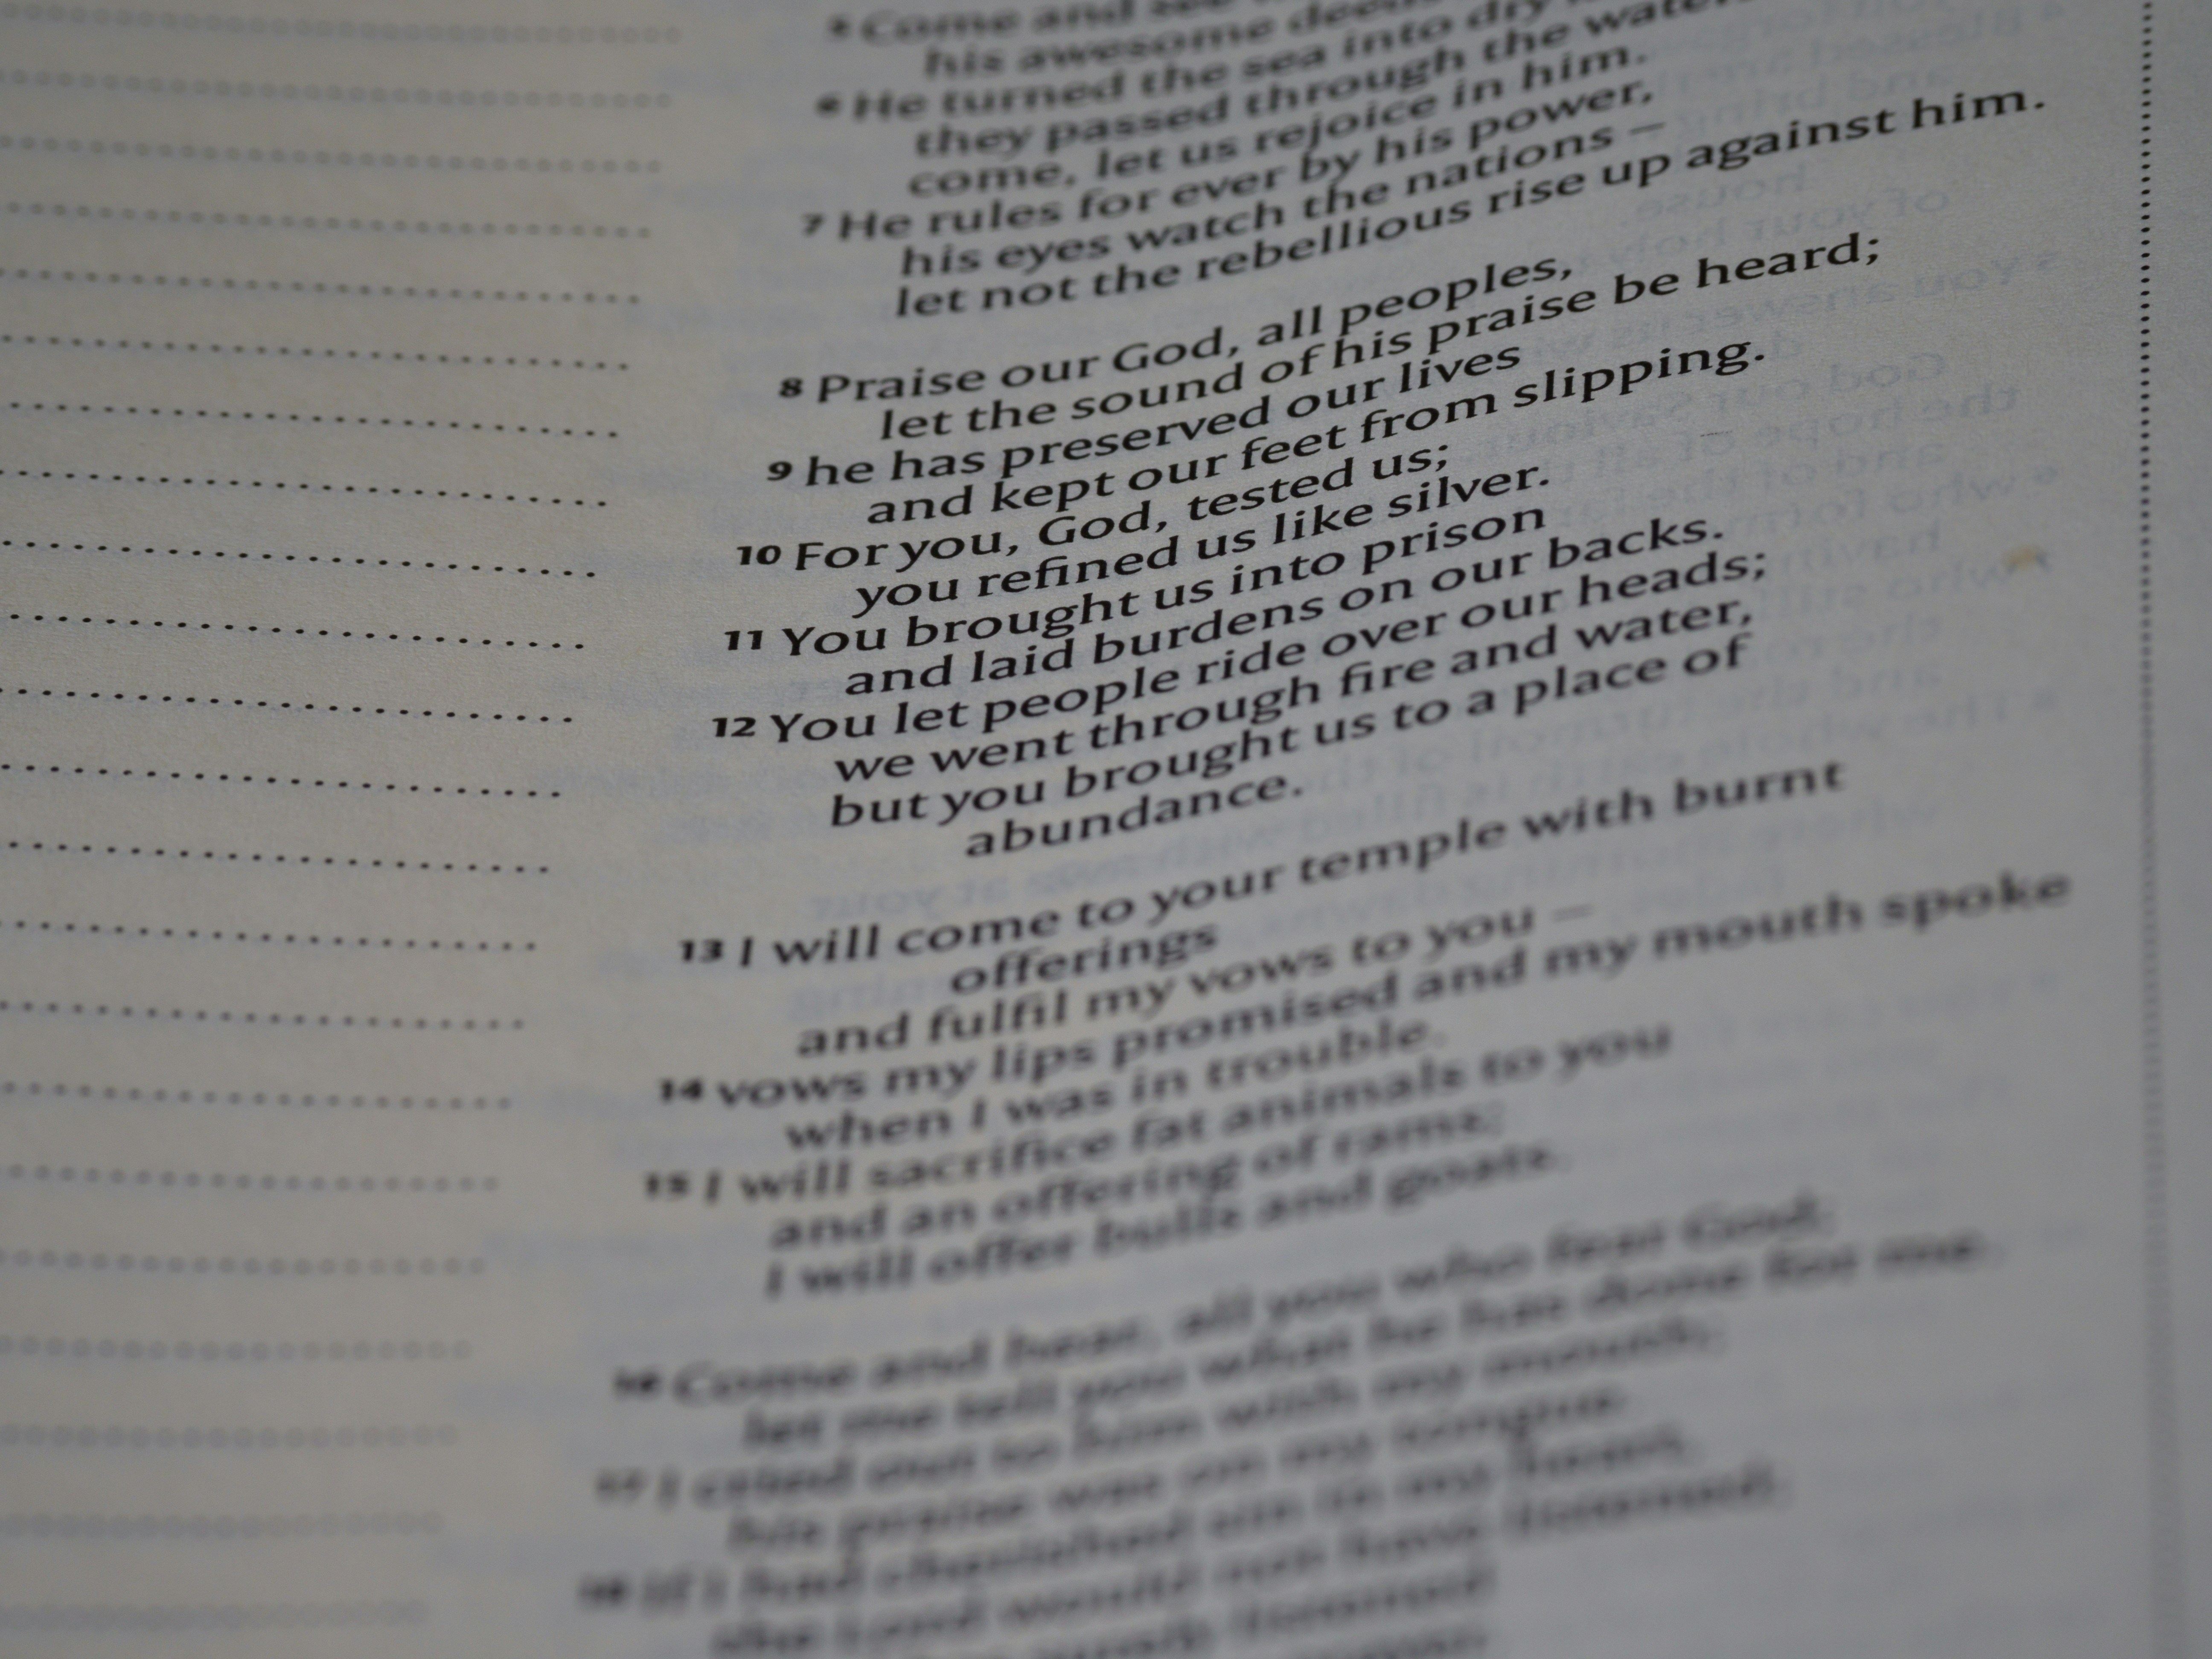 5 Come and see
his awesome deeds
6 He turned the sea into dry
they passed through the waters
come, let us rejoice in him.
7 He rules for ever by his power,
his eyes watch the nations –
let not the rebellious rise up against him.
8 Praise our God, all peoples,
let the sound of his praise be heard;
9 he has preserved our lives
and kept our feet from slipping.
10 For you, God, tested us;
you refined us like silver.
11 You brought us into prison
and laid burdens on our backs.
12 You let people ride over our heads;
we went through fire and water,
but you brought us to a place of
abundance.
13 I will come to your temple with burnt
offerings
and fulfil my vows to you –
14 vows my lips promised and my mouth spoke
when I was in trouble.
15 I will sacrifice fat animals to you
and an offering of rams;
I will offer bulls and goats.
16 Come and hear, all you who fear God;
let me tell you what he has done for me.
17 I cried out to him with my mouth;
his praise was on my tongue.
18 If I had cherished sin in my heart,
the Lord would not have listened;